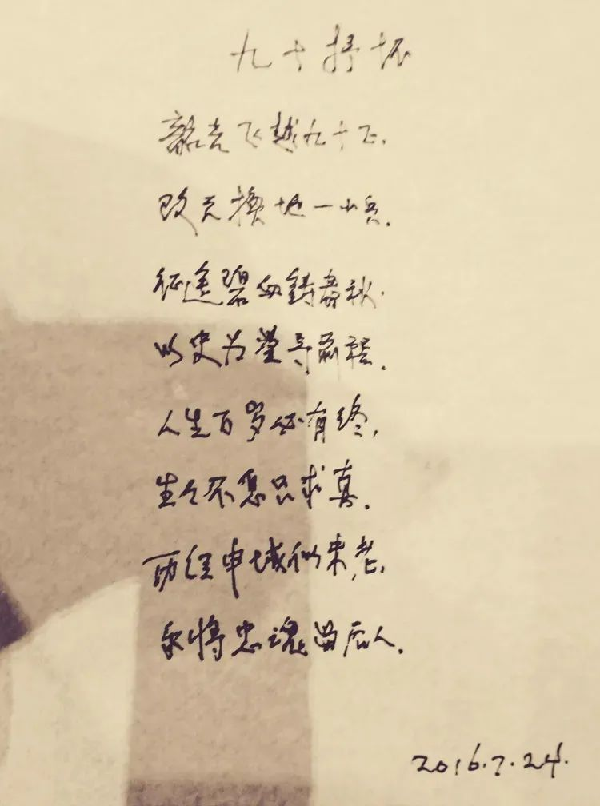 九十抒怀
飞越九十
改天换地一小兵.
征途碧血铸春秋.
以史为鉴导前程.
人生百岁必有终,
生生不息只求真.
历经申城似未老,
将忠魂留后人.
2016.7.24.